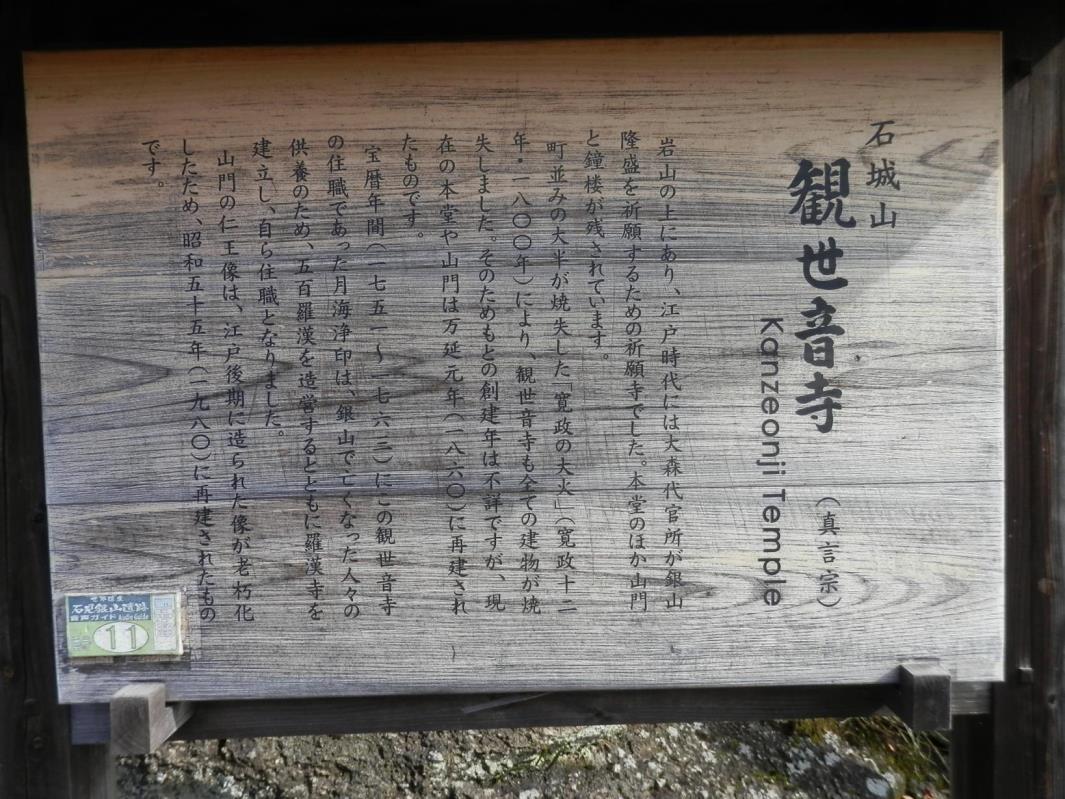 石城山
観世音寺（真言宗）
Kanzeonji Temple
岩山の上にあり、江戸時代には大森代官所が銀山
隆盛を祈願するための祈願寺でした。本堂のほか山門
と鐘楼が残されています。
町並みの大半が焼失した「寛政の大火」（寛政十二
年・一八〇〇年）により、観世音寺も全ての建物が焼
失しました。そのためもとの創建年は不詳ですが、現
在の本堂や山門は万延元年（一八六〇）に再建され
たものです。
宝暦年間（一七五一～一七六三）にこの観世音寺
の住職であった月海浄印は、銀山で亡くなった人々の
供養のため、五百羅漢を造営するとともに羅漢寺を
建立し、自ら住職となりました。
山門の仁王像は、江戸後期に造られた像が老朽化
したため、昭和五十五年（一九八〇）に再建されたもの
です。
世界遺産
石見銀山遺跡
音声ガイド Audio Guide
11